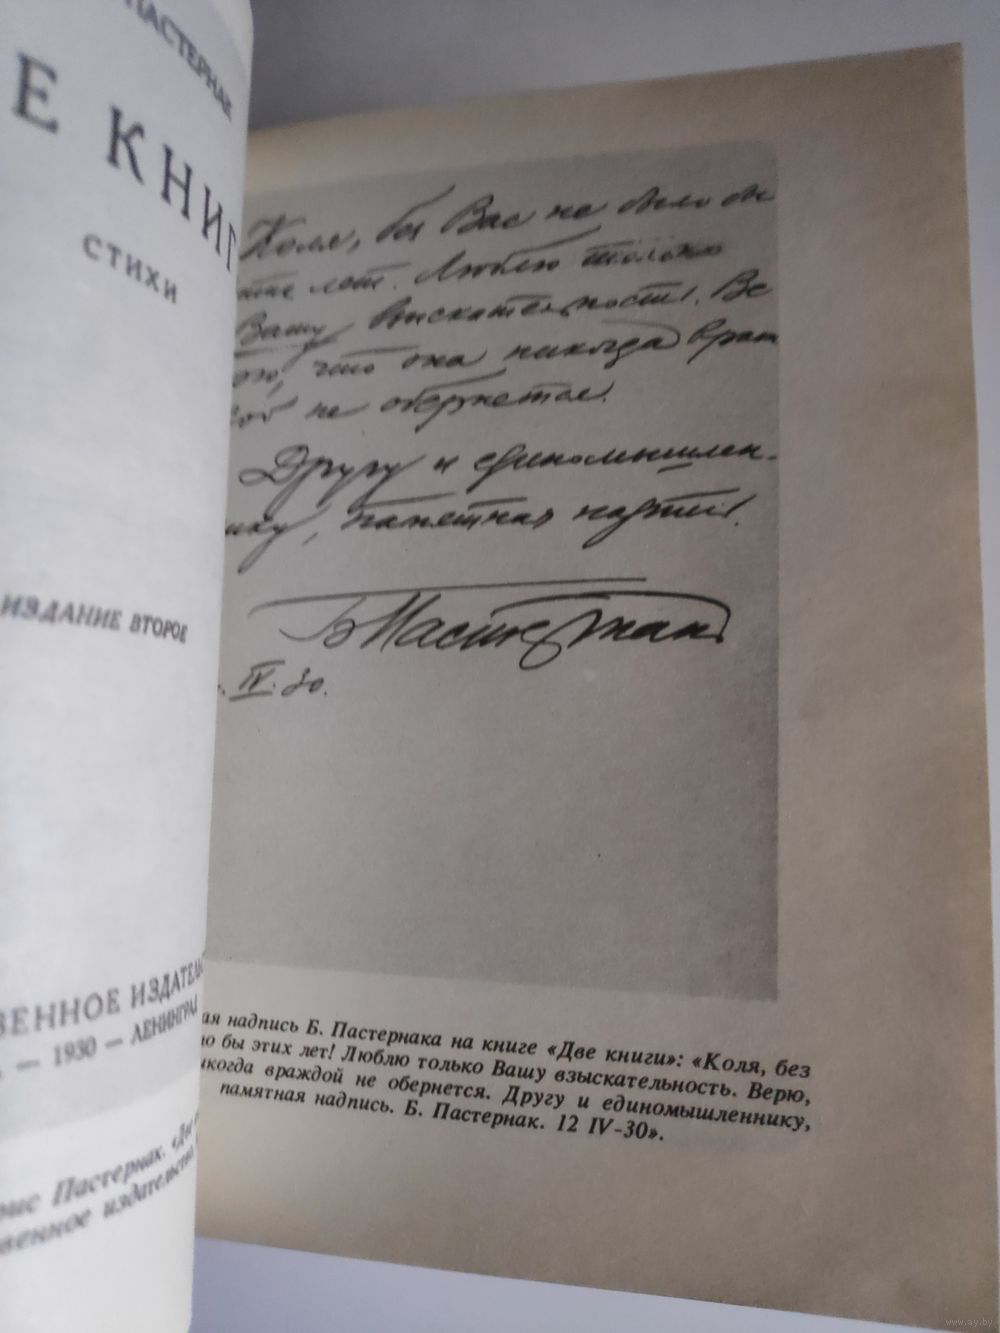 ПАСТЕРНАК
Е КНИГ
СТИХИ
ИЗДАНИЕ ВТОРОЕ
ВЕННОЕ ИЗДАТЕЛЬ
— 1930 — ЛЕНИНГРАД
рис Пастернак. «Дв
венное издательство
Коля, без Вас не было бы
этих лет. Люблю только
Вашу взыскательность. Ве
рю, что она никогда враж
дой не обернется.
Другу и единомышлен-
нику, памятная надпись.
Б Пастернак
IV. 30.
ая надпись Б. Пастернака на книге «Две книги»: «Коля, без
ло бы этих лет! Люблю только Вашу взыскательность. Верю,
икогда враждой не обернется. Другу и единомышленнику,
памятная надпись. Б. Пастернак. 12 IV-30».
www.ay.by